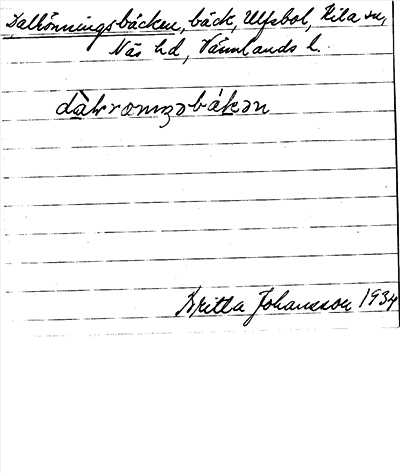 Dalrönningsbäcken, bäck, Ulfsbol, Kila sn,
Näs hd, Värmlands l.
Britta Johansson 1934